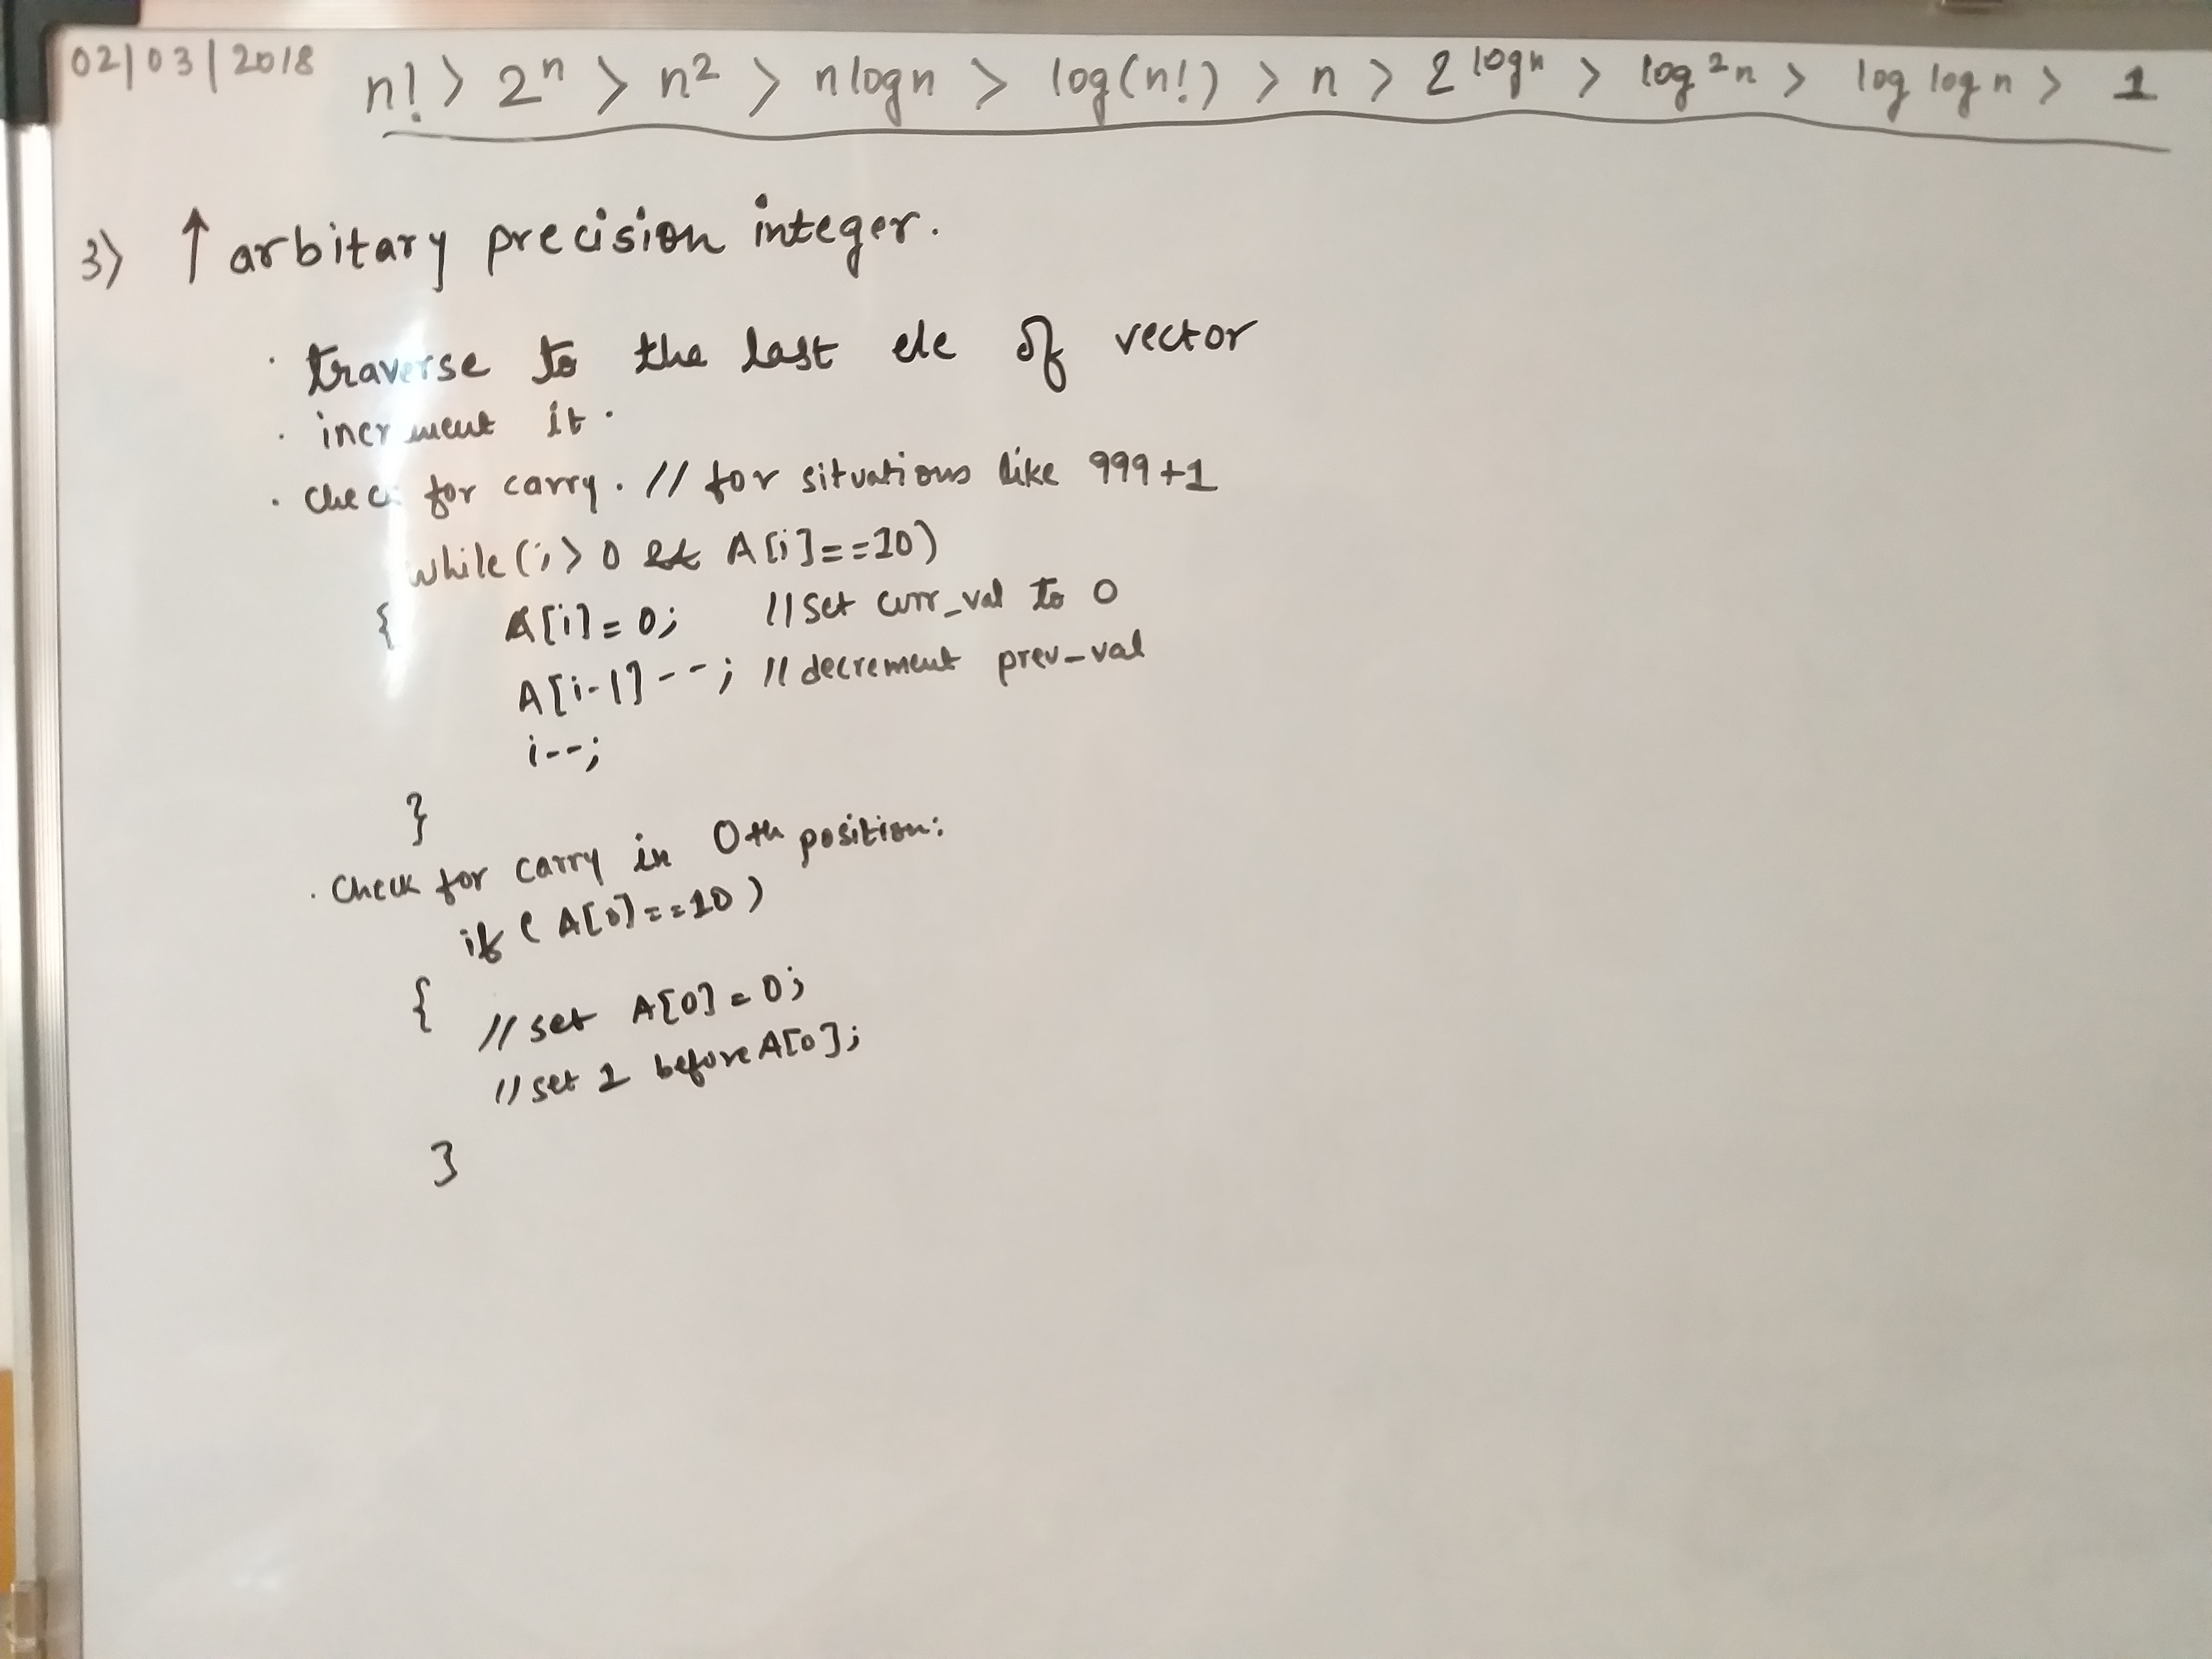 02/03/2018 n! > 2ⁿ > n² > nlogn > log(n!) > n > 2^logn > log²n > log log n > 1
3) ↑ arbitary precision integer.
· traverse to the last ele of vector
· increment it.
· check for carry. // for situations like 999+1
while(i>0 && A[i]==10)
{ A[i]=0; //set curr_val to 0
A[i-1]--; // decrement prev_val
i--;
}
· Check for carry in 0th position:
if (A[0]==10)
{ // set A[0]=0;
// set 1 before A[0];
}